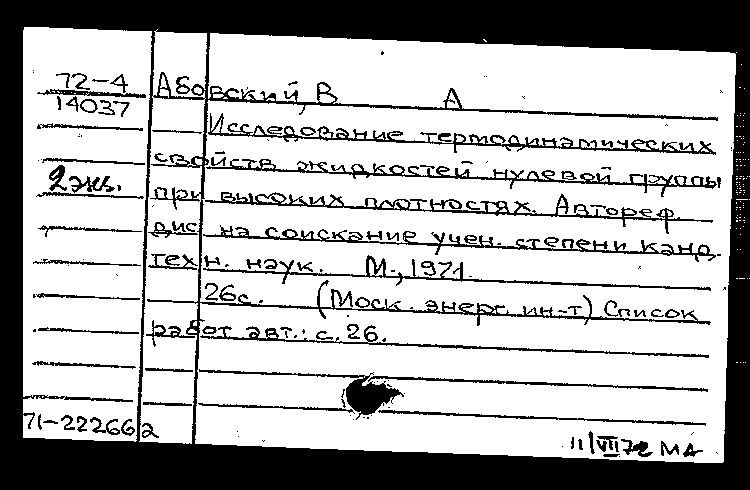 72-4 Абовский, В А
14037
Исследование термодинамических
свойств жидкостей нулевой группы
2 экз. при высоких плотностях. Автореф.
дис на соискание учен. степени канд.
техн. наук. М., 1971.
26с. (Моск. энерг. ин-т) Список
работ авт.: с. 26.
71-22266 2
11/VII 72 МА